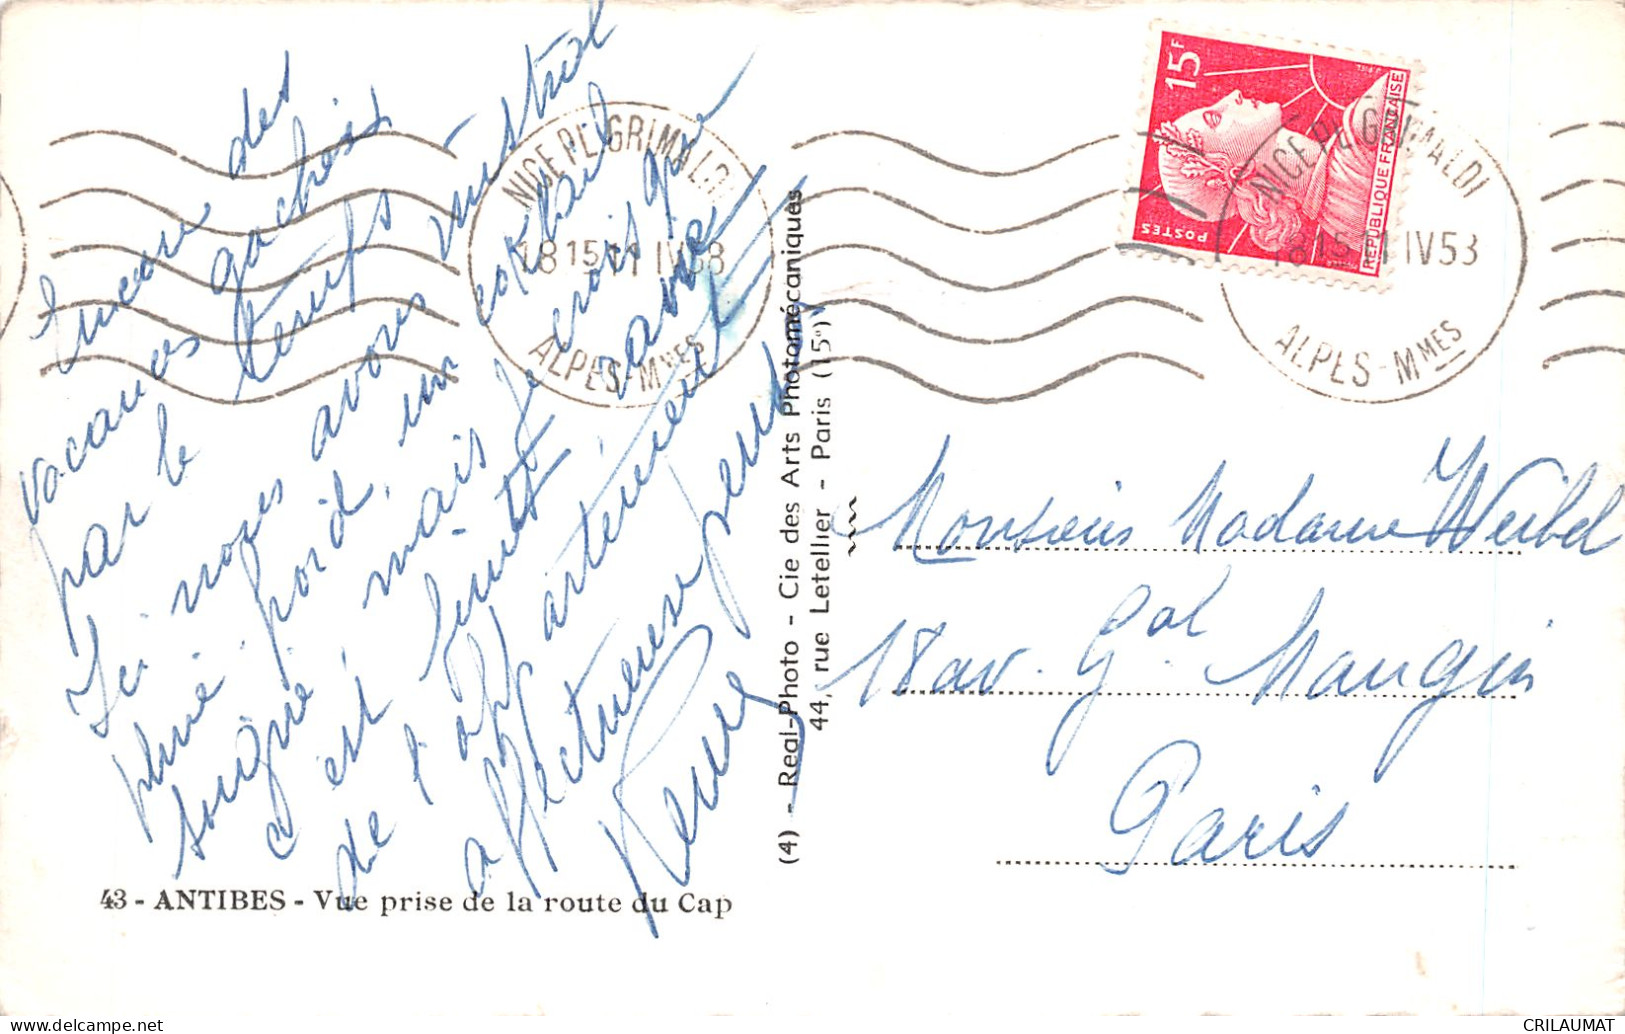 Encore des
vacances gachées
par le temps
Ici nous avons mistral
pluie, froid, un cocktail
soigné, mais je crois que
c'est tout
de l'app
affectueuse pensée
NICE PL. GRIMALDI
18 15 11 IV 53
ALPES-MMES
15F
POSTES
REPUBLIQUE FRANÇAISE
NICE PL. GRIMALDI
18 15 11 IV 53
ALPES-MMES
(4) - Real-Photo - Cie des Arts Photomécaniques
44, rue Letellier - Paris (15e)
Monsieur Madame Weibel
18 av. Gal Mangin
Paris
43 - ANTIBES - Vue prise de la route du Cap
CRILAUMAT